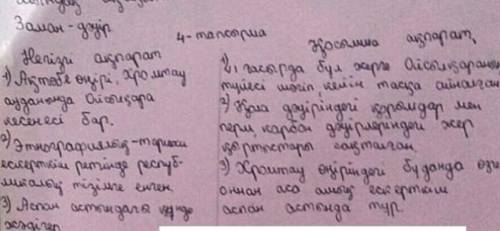 Заман - дәуір
4 - тапсырма
Негізгі ақпарат
1) Ақтөбе өңірі, Хромтау
ауданында Айсыңқара
кесенесі бар.
2) Этнографиялық - тарихи
ескерткіш ретінде респуб-
ликалық тізімге енген.
3) Аспан астындағы
Қосымша ақпарат
1) ғасырда бұл жерге
түйесі шөгіп, кейін тасқа айналған
2) Юра дәуіріндегі қорымдар мен
перм, карбон дәуірлеріндегі жер
қыртыстары сақталған.
3) Хромтау өңіріндегі бұдан да өзге
оннан аса ашық ескерткіш
аспан астында тұр.